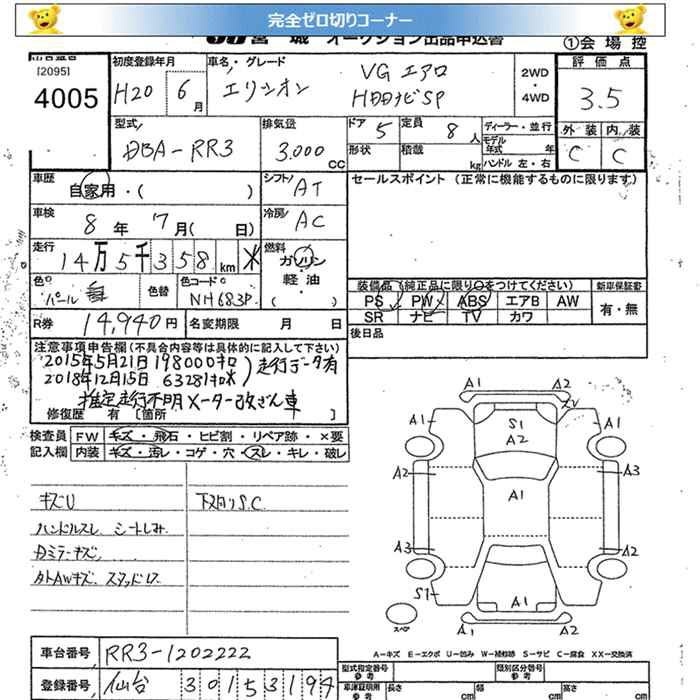 完全ゼロ切りコーナー
宮城 オークション出品申込書
①会場控
[2095]
4005
初度登録年月 H20 6月
車名・グレード エリシオン VG エアロ
HDDナビSP
2WD・4WD
評価点 3.5
型式 DBA-RR3
排気量 3.000 CC
ドア 5 定員 8人
形状 積載 kg
ディーラー・並行
モデル年式 年
ハンドル 左・右
外装 内装
C C
車歴 自家用・( )
シフト AT
セールスポイント (正常に機能するものに限ります)
車検 8年 7月( 日)
冷房 AC
走行 14万5千358km
燃料 ガソリン・軽油・( )
色 パール
色替
色コード NH683P
装備品(純正品に限り○をつけてください)
新車保証書
PS PW ABS エアB AW
SR ナビ TV カワ
有・無
R券 14,940円 名変期限 月 日
後日品
注意事項申告欄(不具合内容等は具体的に記入して下さい)
2015年5月21日198000キロ
2018年12月15日63281キロ
走行データ有
推定走行不明メーター改ざん車
修復歴 有 〔箇所 〕
検査員記入欄
FW キズ・飛石・ヒビ割・リペア跡・×要
内装 キズ・汚レ・コゲ・穴・スレ・キレ・破レ
キズU
下廻りS.C
ハンドルスレ シートしみ
Dミラーキズ
A1 A2
S1
A2
A1 A1
A2 A1 A3
A3 A2
S1
A1
A1 A2
スペア
A-キズ E-エクボ U-凹み W-補修跡 S-サビ C-腐食 XX-交換済
車台番号 RR3-1202222
登録番号 仙台 301 5 3194
型式指定番号 参考
類別区分番号 参考
車庫証明用 参考
長さ cm 幅 cm 高さ cm